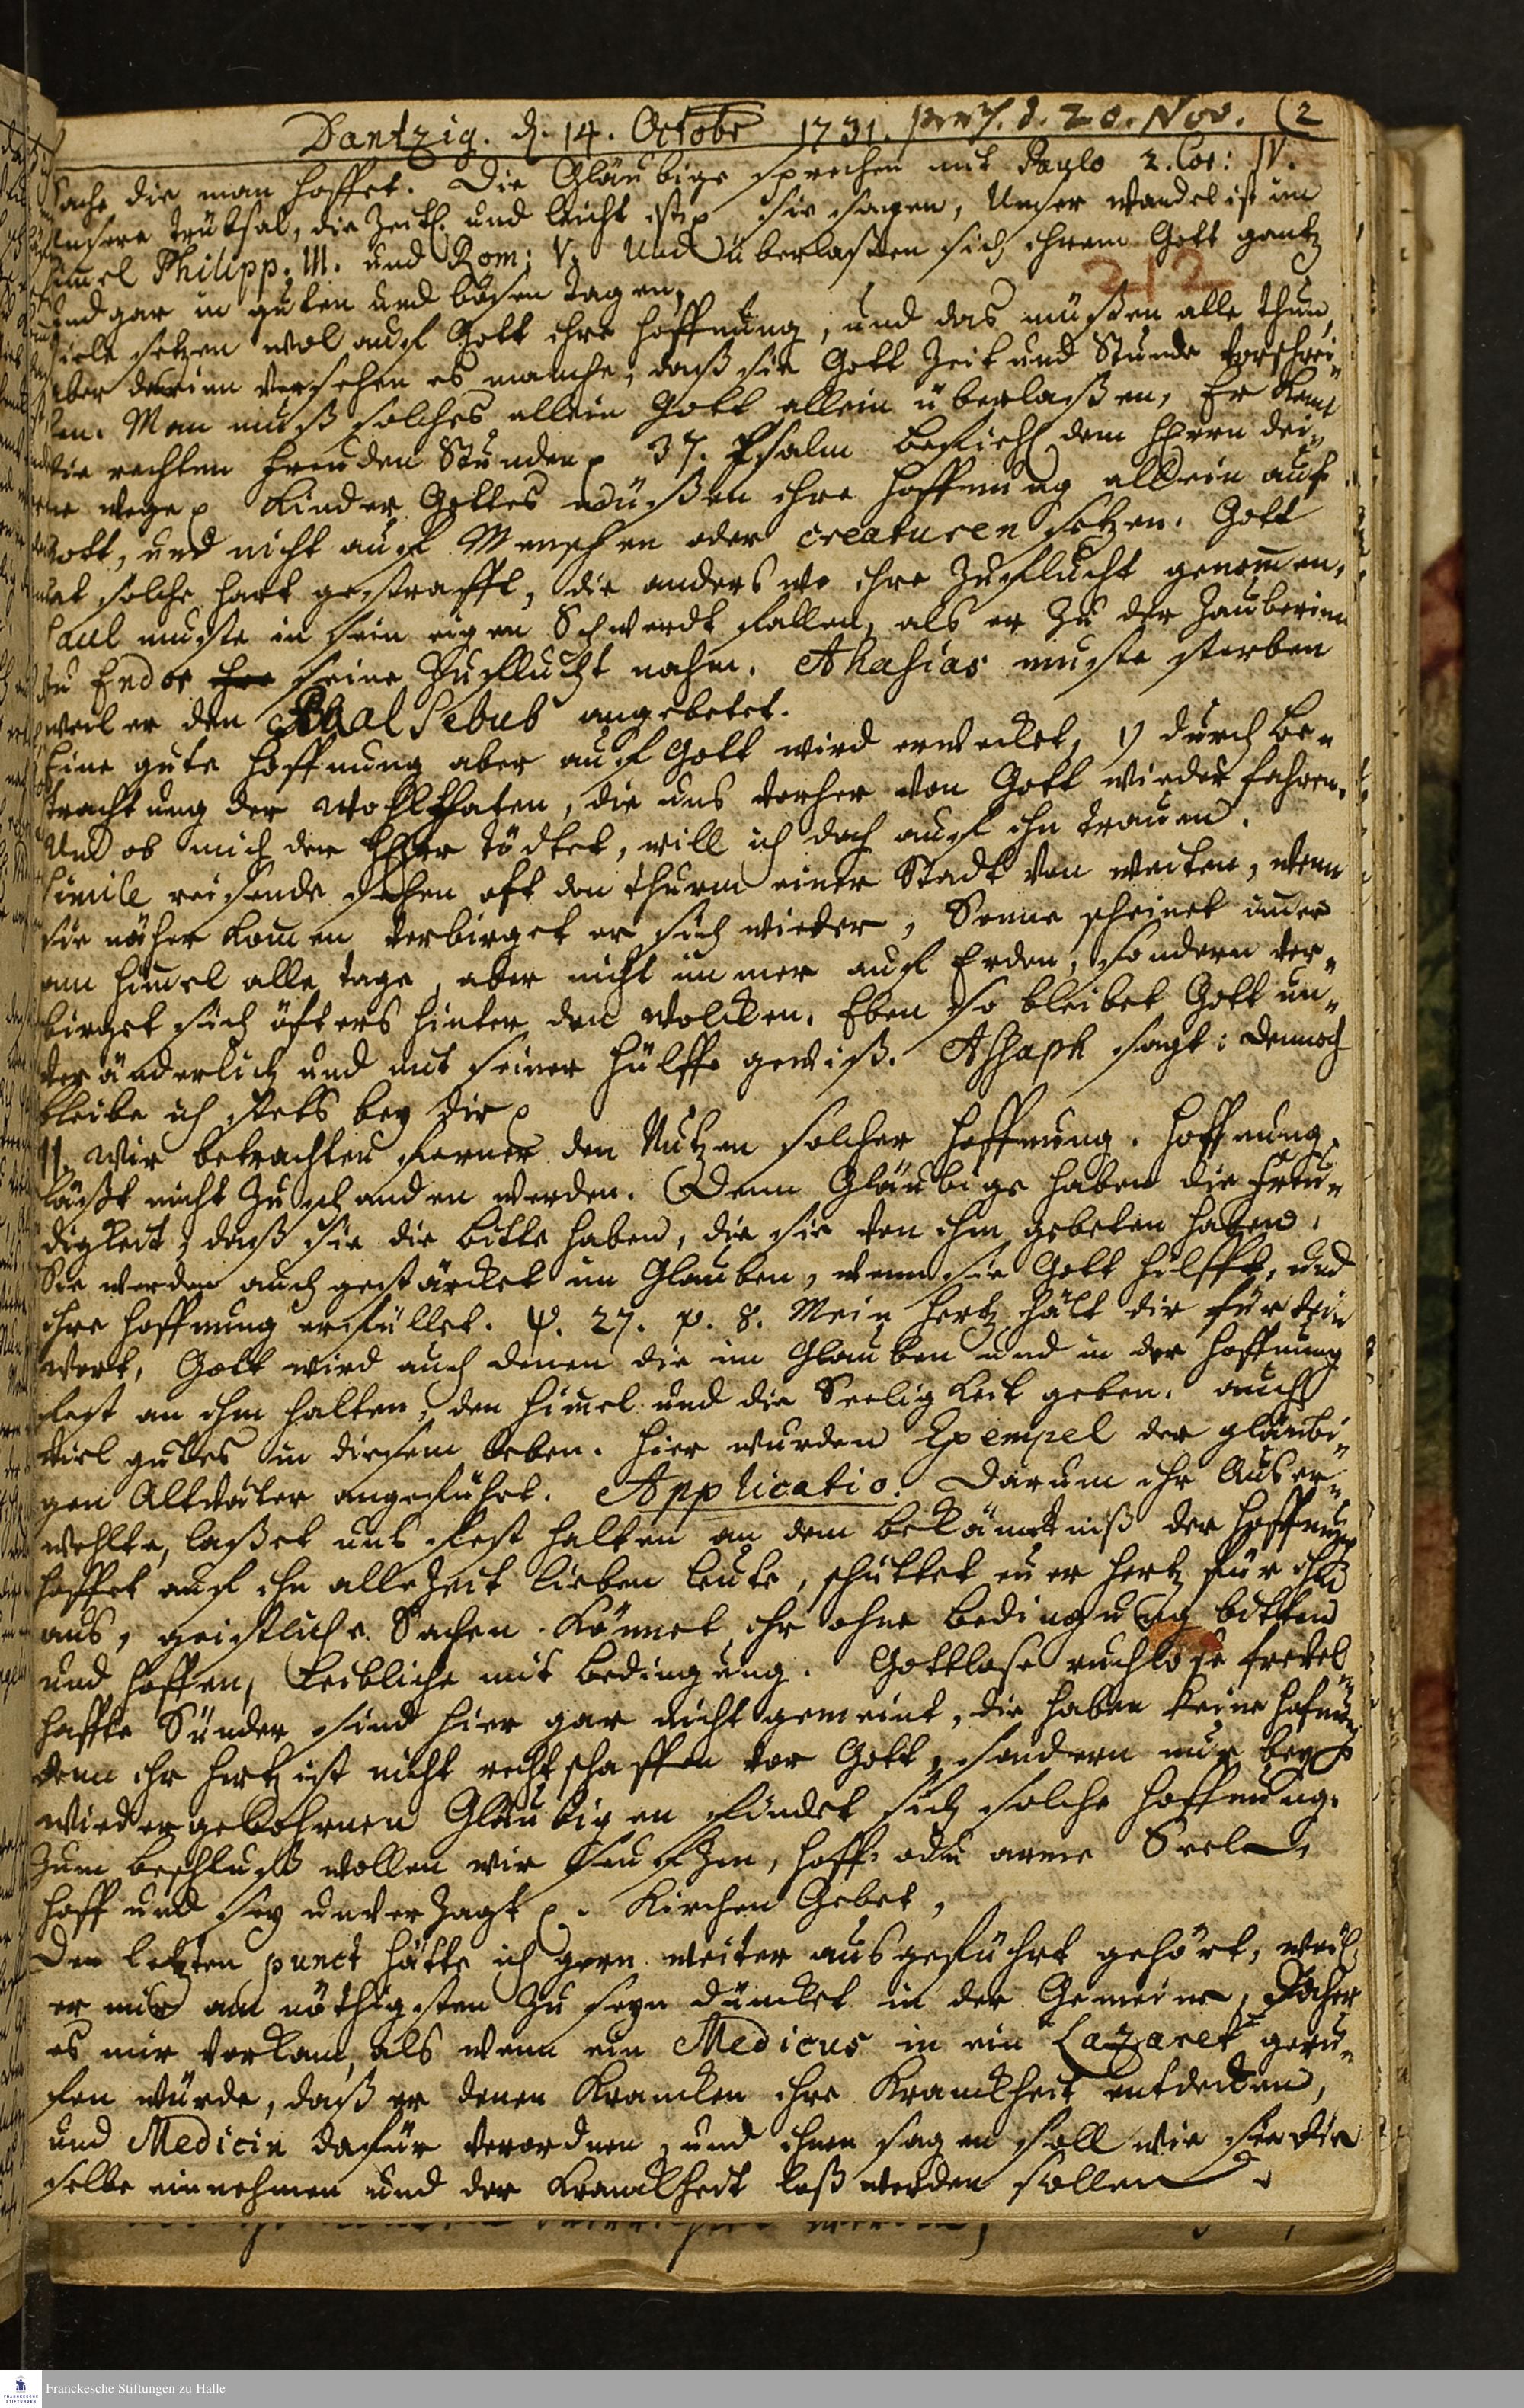 Dantzig. d. 14. Octobr 1731. præs. d. 20. Nov. (2
Sache die man hoffet. Die Gläubige sprechen mit Paulo 2. Cor: IV.
Unsere trübsal, die Zeitl. und leicht ist p sie sagen, Unser wandel ist im
Himel Philipp. III. und Rom: V. Und überlaßen sich ihrem Gott gantz
212
und gar in guten und bösen tagen,
Viele setzen wol auf Gott ihre hoffnung, und das müßen alle thun,
aber darinn versehen es manche, daß sie Gott Zeit und Stunde vorschrei„
ben. Man muß solches allein Gott allein überlaßen, Er kent
die rechten Freuden Stunden p 37. Psalm Befiehl dem HErrn dei„
ne wege p Kinder Gottes müßen ihre hoffnung allein auf
Gott, und nicht auf Menschen oder creaturen setzen. Gott
hat solche hart gestrafft, die anders wo ihre Zuflucht genomen,
Saul muste in sein eigen Schwerdt fallen, als er Zu der Zauberinn
zu Endor seine Zuflucht nahm. Ahasias muste sterben
weil er den Baal Sebub angebetet.
Eine gute hoffnung aber auf Gott wird erwecket, 1) durch Be„
trachtung der wohlthaten, die uns vorher von Gott wiederfahren.
Und ob mich der HErr tödtet, will ich doch auf ihn trauen.
Simile reisende sehen oft den thurm einer Stadt von weiten, wenn
sie näher komen verbirget er sich wieder, Sonne scheinet imer
am Himel alle tage, aber nicht immer auf Erden, sondern ver„
birget sich öfters hinter den wolcken. Eben so bleibet Gott un„
veränderlich und mit seiner hülffe gewiß. Assaph sagt: dennoch
bleibe ich stets bey dir p
II. wir betrachten ferner den Nutzen solcher hoffnung. hoffnung
läßt nicht zu schanden werden. Denn Gläubige haben die Freu„
digkeit, daß sie die bitte haben, die sie von ihm gebeten haben.
Sie werden auch gestärcket im Glauben, wenn sie Gott hilfft, und
ihre hoffnung erfüllet. ψ. 27. v. 8. Mein hertz hält dir für dein
wort, Gott wird auch denen die im Glauben und in der hoffnung
fest an ihm halten, den Himel und die Seeligkeit geben. auch
viel gutes in diesem leben. hier wurden Exempel der gläubi„
gen Altväter angeführt. Applicatio. Darum ihr Auser„
wehlte, laßet uns fest halten an dem bekäntniß der hoffnung
hoffet auf ihn alle Zeit lieben leute, schüttet euer hertz für ihm
aus, geistliche Sachen könnet ihr ohne bedingung bitten
und hoffen, leibliche mit bedingung. Gottlose ruchlose frevel„
haffte Sünder sind hier gar nicht gemeint, die haben keine hofnung
denn ihr hertz ist nicht rechtschaffen vor Gott, sondern nur bey
wiedergebohrnen Gläubigen findet sich solche hoffnung.
Zum beschluß wollen wir seufzen, hoff. o du arme Seele
hoff und sey unverzagt p. Kirchen Gebet,
Den letzten punct hätte ich gern weiter ausgeführt gehört, weil
er mir am nöthigsten zu seyn düncket in der Gemeine, daher
es mir vorkam, als wenn ein Medicus in ein Lazaret geru„
fen würde, daß er denen Krancken ihre Kranckheit entdecken,
und Medicin dafür verordnen, und ihnen sagen soll wie sie die
selbe einnehmen und der Kranckheit loß werden sollen
Franckesche Stiftungen zu Halle